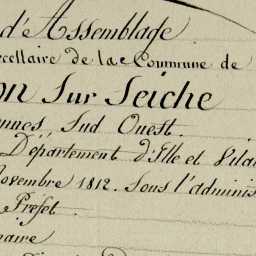 d'Assemblage
rcellaire de la Commune de
on Sur Seiche
ennes, Sud Ouest.
Département d'Ille et Vilai
Novembre 1812. Sous l'adminis
Préfet.
maire